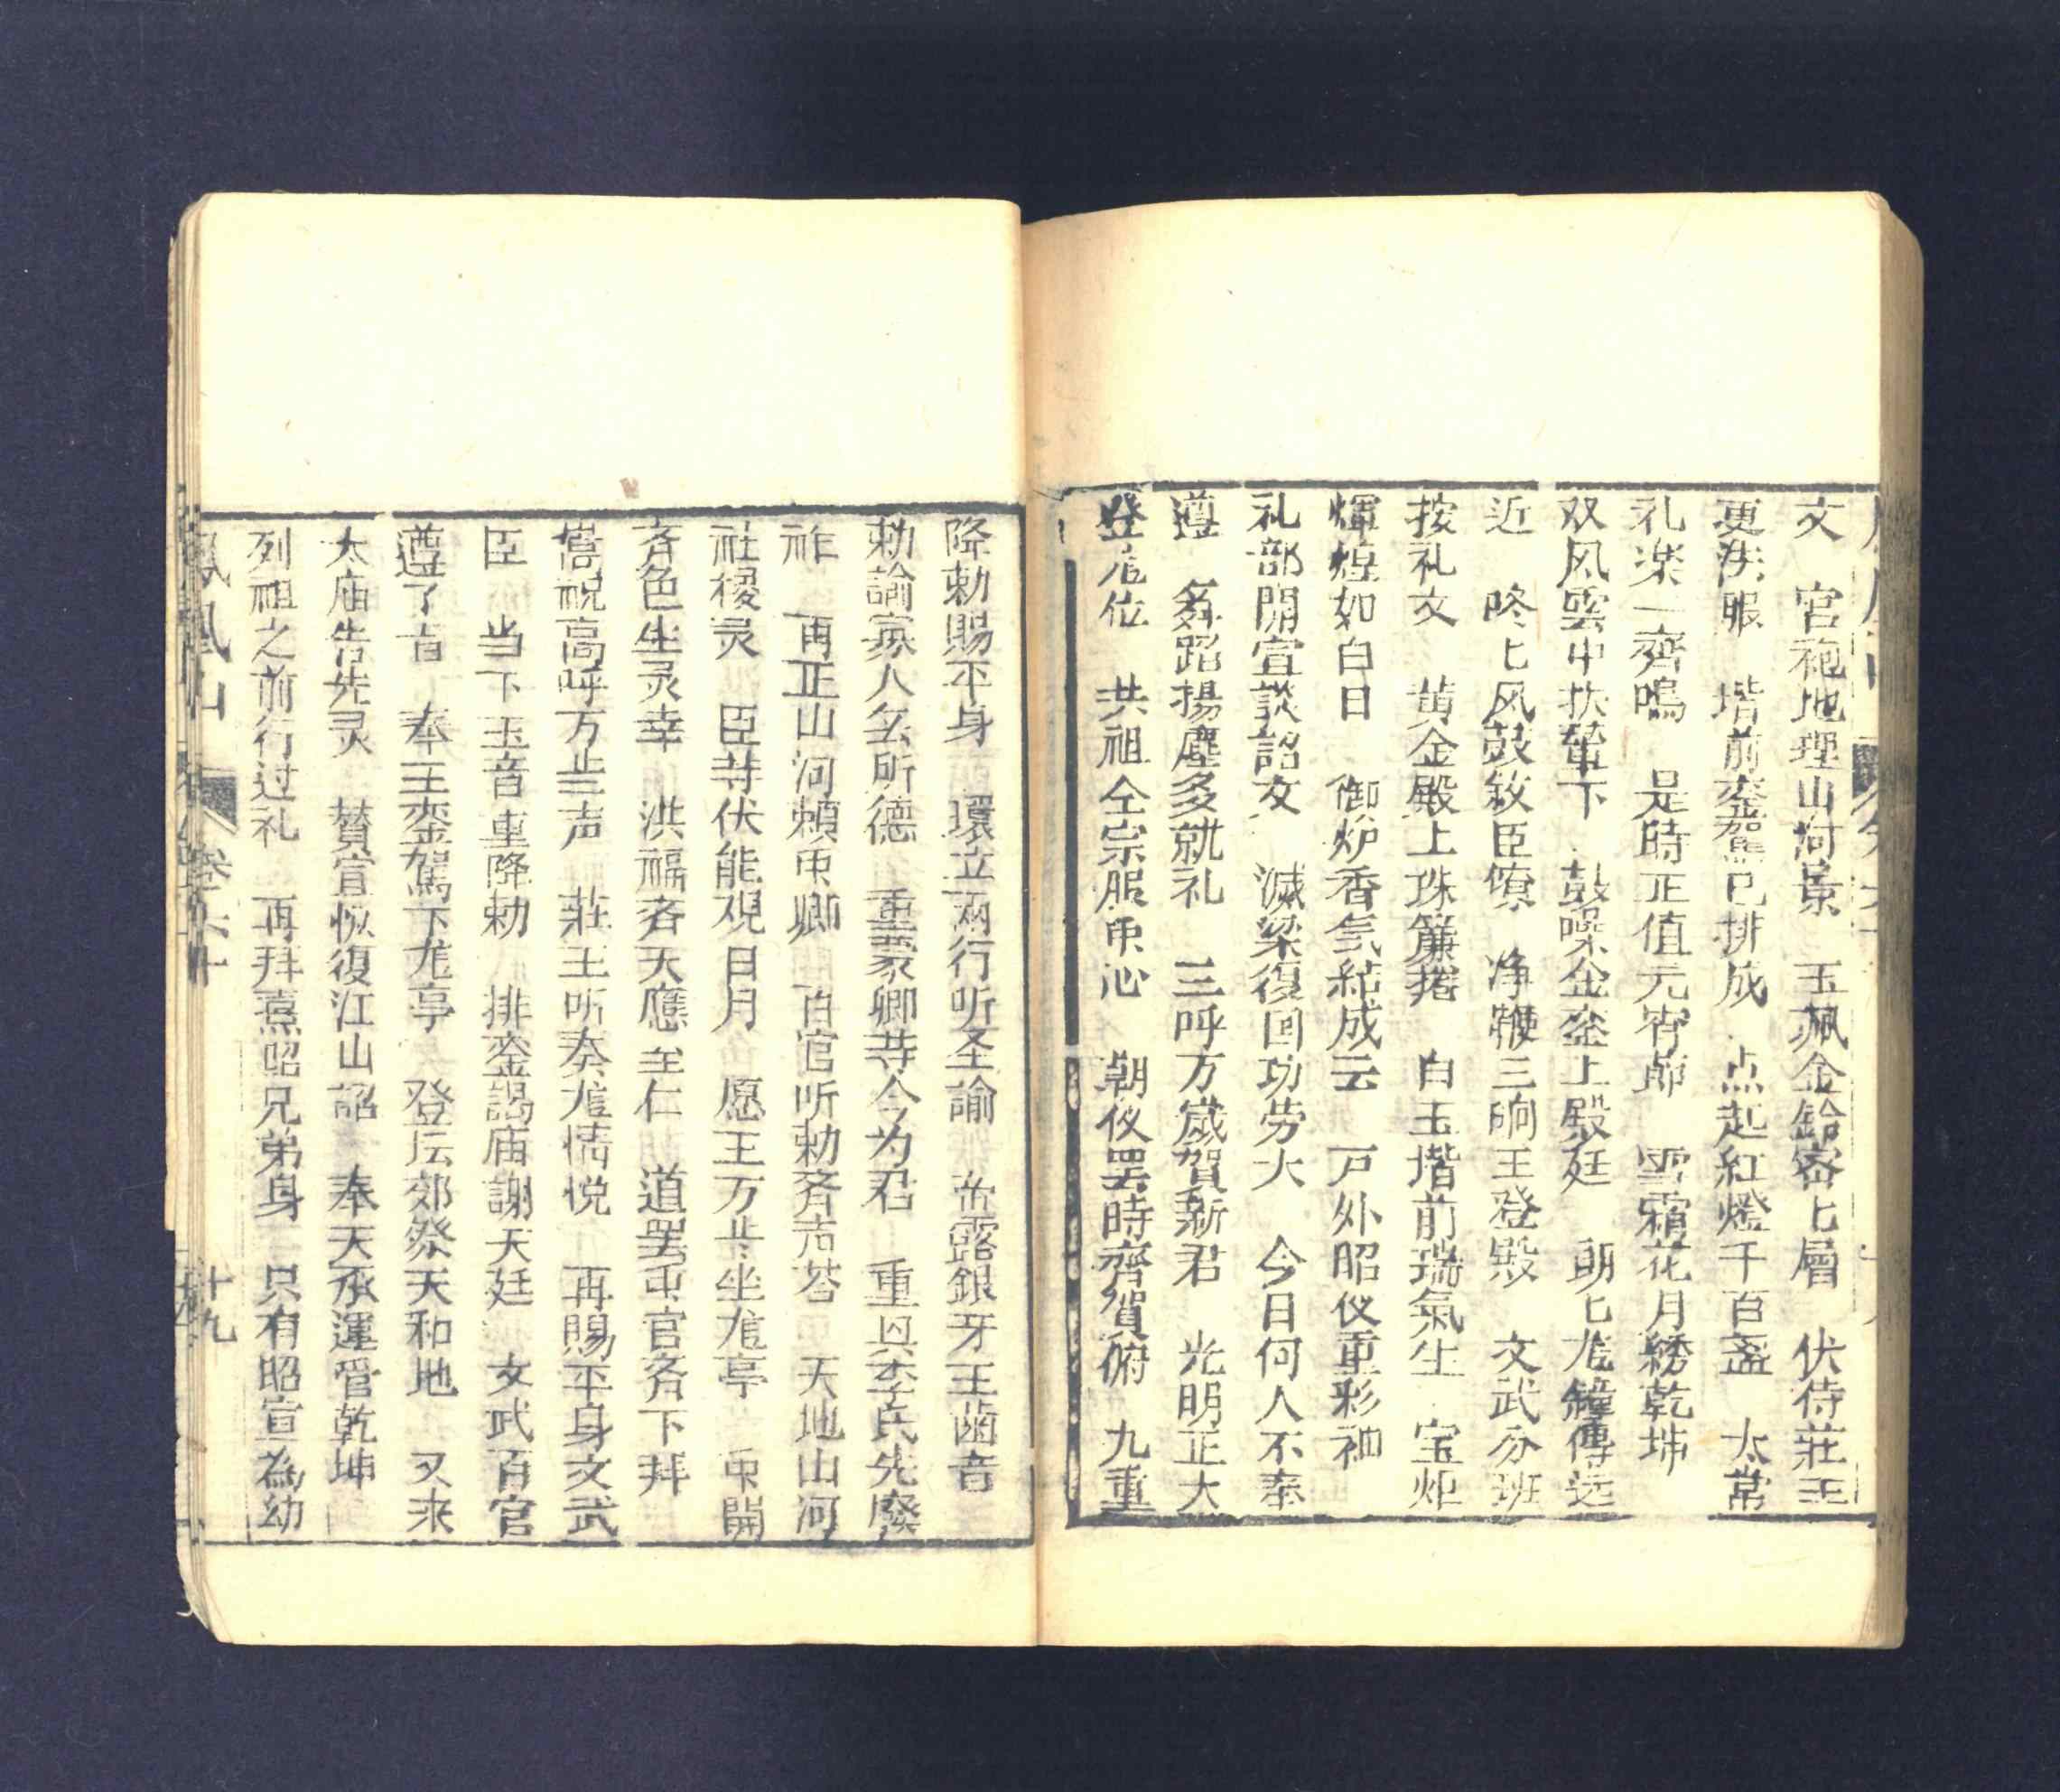 文　宮袍地理山河景　玉珮金鈴密匕層　伏侍莊王
更洗眼　堦前鑾駕已排成　点起紅燈千百盞　太常
礼楽一齊鳴　是時正值元宵節　雪霜花月綉乾坤
双风雲中扶輦下　鼓噪金鑾上殿廷　朝匕龙鐘傳远
近　咚匕风鼓敘臣僚　净鞭三响王登殿　文武分班
按礼文　黄金殿上珠簾捲　白玉堦前瑞氣生　宝炬
輝煌如白日　御炉香気結成云　戸外昭仪重彩袖
礼部開宣談詔文　滅梁復囯功劳大　今日何人不奉
遵　舞蹈揚塵多就礼　三呼万歲賀新君　光明正大
登龙位　共祖仝宗服衆心　朝仪罢時齊賀俯　九重
降勅賜平身　環立兩行听圣諭　帝露銀牙王齒音
勅諭家人名所德　重蒙卿等今为君　重具李氏先廢
祚　再正山河頼衆卿　百官听勅斉声答　天地山河
社稷灵　臣等伏能观日月　愿王万歩坐龙亭　衆開
各色生灵幸　洪福斉天應至仁　道罢衆官斉下拜
嵩祝高呼万歩声　莊王听奏龙情悦　再賜平身文武
臣　当下玉音重降勅　排鑾謁庙謝天廷　文武百官
遵了旨　奉王鑾駕下龙亭　登坛郊祭天和地　又来
太庙告先灵　賛宣恢復江山詔　奉天承運管乾坤
列祖之前行过礼　再拜熹昭兄弟身　只有昭宣為幼
鳳凰山　卷六十　十九